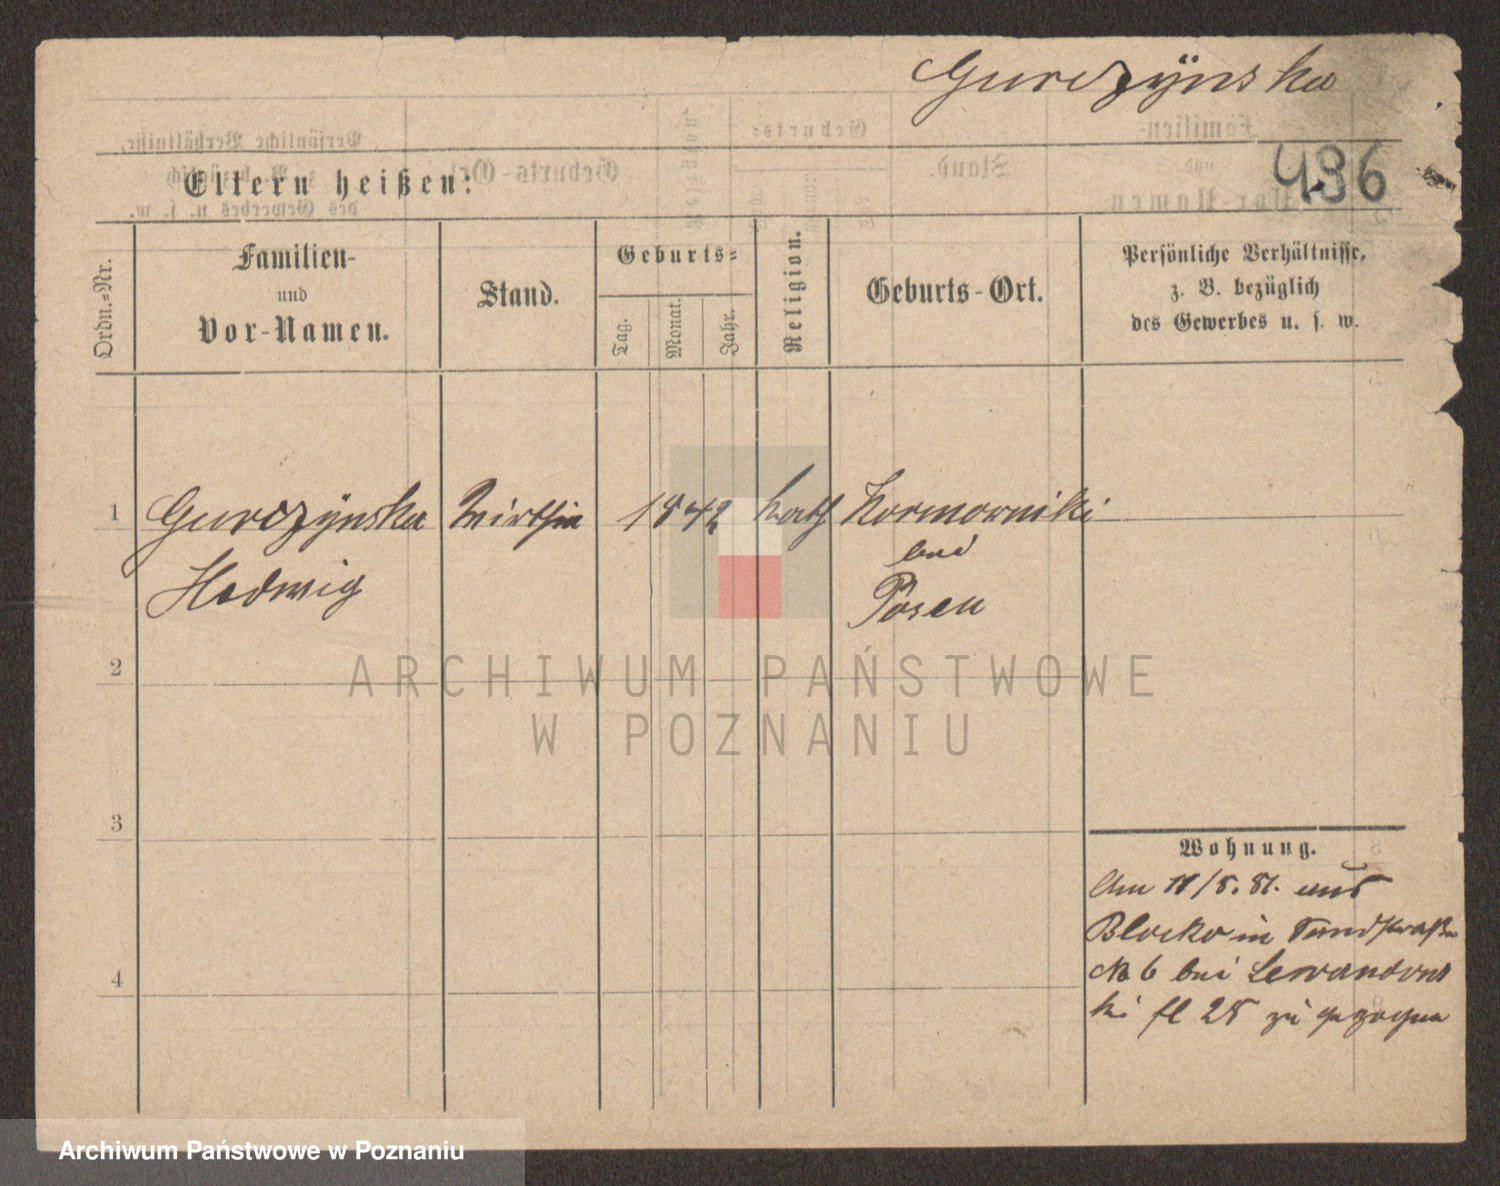 Gurczÿnska
436
Eltern heißen:
Ordn.=Nr.
Familien-
und
Vor-Namen.
Stand.
Geburts=
Tag.
Monat.
Jahr.
Religion.
Geburts-Ort.
Persönliche Verhältnisse,
z. B. bezüglich
des Gewerbes u. s. w.
1 Gurczÿnska Wirthin 1842 kath Kormorniki
bei
Hedwig Posen
2
3
4
Wohnung.
Am 11/5. 81. aus
Blocko in
No 6 bei Lewandows
ki fl 25 zu gezogen
ARCHIWUM PAŃSTWOWE
W POZNANIU
Archiwum Państwowe w Poznaniu